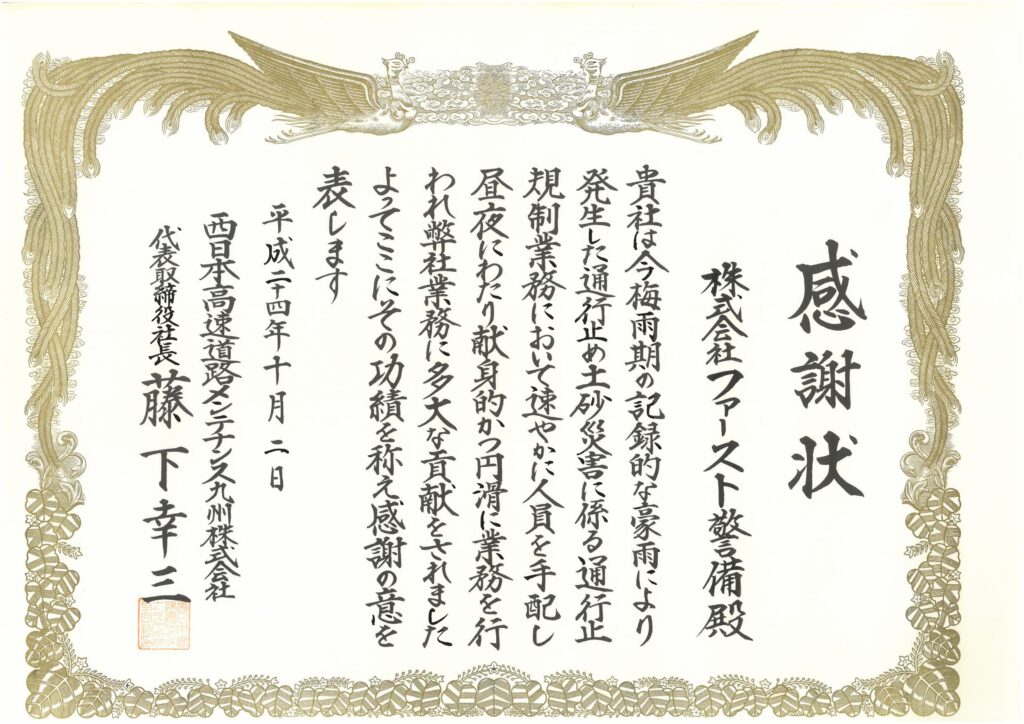 感謝状
株式会社ファースト警備殿
貴社は今梅雨期の記録的な豪雨により
発生した通行止め土砂災害に係る通行止
規制業務において速やかに人員を手配し
昼夜にわたり献身的かつ円滑に業務を行
われ弊社業務に多大な貢献をされました
よってここにその功績を称え感謝の意を
表します
平成二十四年十月二日
西日本高速道路メンテナンス九州株式会社
代表取締役社長 藤下幸三